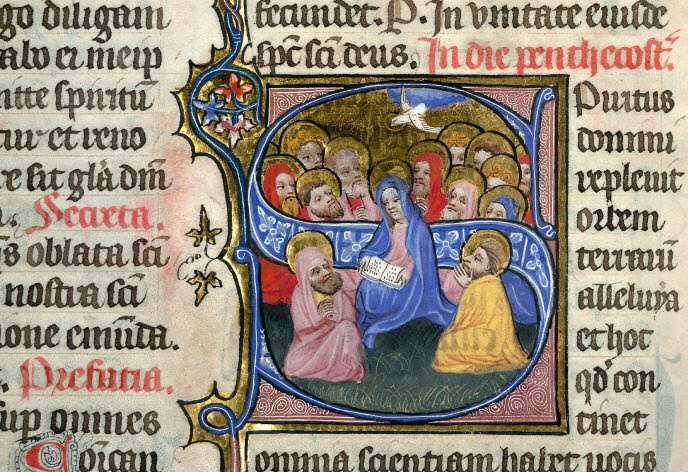 go diligam
albo ei meip
itte spiritū
tur et reno
re sit glā dm̄
Secreta.
s oblata scī
nostra scī
ione emūda.
Prefatia.
sup omnes
fecundet. P. In vnitate eiusdē
spc̄ scī deus. In die penthecost.
Spiritus
domini
repleuit
orbem
terrarū
alleluya
et hoc
qd̄ con
tinet
omnia scientiam habet uocis